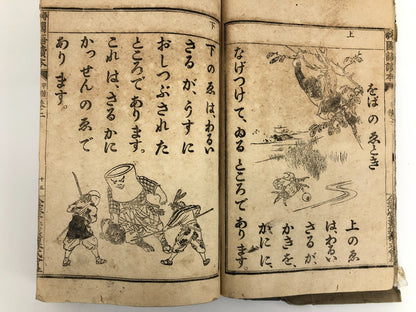 上
をばの ゑとき
上の ゑ
は、わるい
さるが、
かきを、
かに に、
なげつけて、ゐる ところで あり ます。
下
下の ゑは、わるい
さるが、うすに
おしつぶされた
ところで あります。
これは、さるかに
かっせんの ゑで
あり ます。